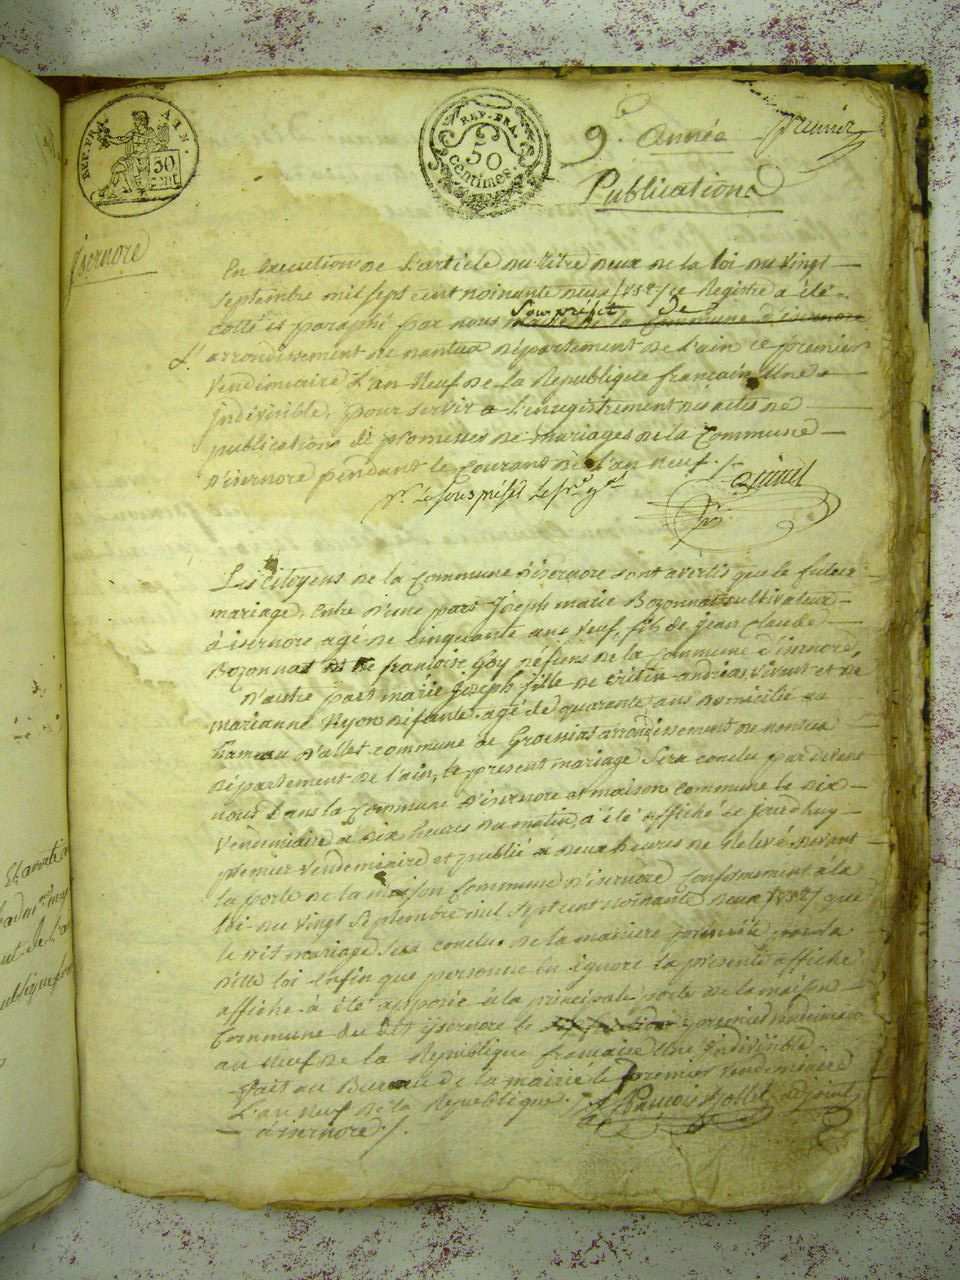 REP. FRA. AIN.
50 CENT.
REP. FRA.
50
centimes.
9.e Année
Premier
Publications
Isernore
En Execution de l'article du titre deux de la loi du vingt
septembre mil sept cent noinante deux (v.s.) ce Registre a été
Souspréfet de
collé et paraphé par nous maire de la Commune d'isernore
L'arrondissement de nantua département de l'ain ce premier
vendimiaire L'an neuf de la Republique francaise une
indivisible, pour servir a l'enregistrement des actes de
publications de promesses de mariages de la Commune
D'isernore pendant le Courant de l'an neuf./.
Pr. Le sous préfet Le
Les citoyens de la Commune d'isernore sont avertis que le futur
mariage, Entre D'une part Joseph marie Bozonnat cultivateur
à isernore agé de cinquante ans neuf, fils de Jean Claude
Bozonnat et de françoise Goy défuns de la Commune d'isernore,
D'autre part marie Joseph fille de andréa, vivant et de
marianne défunte, agé de quarante ans domicilié au
hameau d'allet commune de Groissiat arrondissement de nantua
département de l'ain, le present mariage sera conclu par devant
nous dans la Commune d'isernore et maison commune le dix
vendimiaire a dix heures du matin, a été affiché ce jourdhuy
premier vendemiaire et publié a deux heures de relevé devant
la porte de la maison Commune d'isernore Conformement à la
loi du vingt Septembre mil sept cent noinante deux (v.s.) que
le dit mariage sera conclu de la maniere par la
ditte loi Enfin que personne En ignore la presente affiche
affiche à été apposée à la principale porte de la maison
Commune du dit ysernore le premier vendimiaire
an neuf de la Republique francaise une indivisible
fait au Bureau de la mairie le premier vendemiaire
L'an neuf de la Republique. françois adjoint
à isernore./.